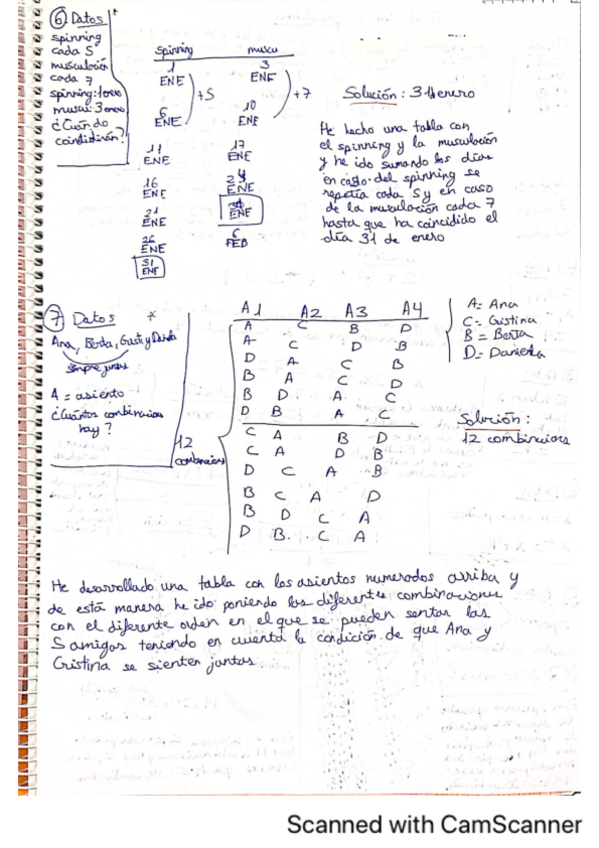 6 Datos
spinning
cada 5
musculación
cada 7
spinning: 1 enero
muscu: 3 enero
¿Cuándo
coincidirán?
spinning muscu
1 ENE 3 ENE
+5 +7
6 ENE 10 ENE
11 ENE 17 ENE
16 ENE 24 ENE
21 ENE 31 ENE
26 ENE 6 FEB
31 ENE
Solución: 31 enero
He hecho una tabla con
el spinning y la musculación
y he ido sumando los días
en caso del spinning se
repetía cada 5 y en caso
de la musculación cada 7
hasta que ha coincidido el
día 31 de enero
7 Datos *
siempre juntas
A = asiento
¿Cuántas combinaciones
hay?
12
combinaciones
A1 A2 A3 A4
A C B D
A C D B
D A C B
B A C D
B D A C
D B A C
C A B D
C A D B
D C A B
B C A D
B D C A
D B C A
A = Ana
C = Cristina
B = Berta
D = Daniela
Solución:
12 combinaciones
He desarrollado una tabla con los asientos numerados arriba y
de esta manera he ido poniendo las diferentes combinaciones
con el diferente orden en el que se pueden sentar las
5 amigas teniendo en cuenta la condición de que Ana y
Cristina se sienten juntas
Scanned with CamScanner